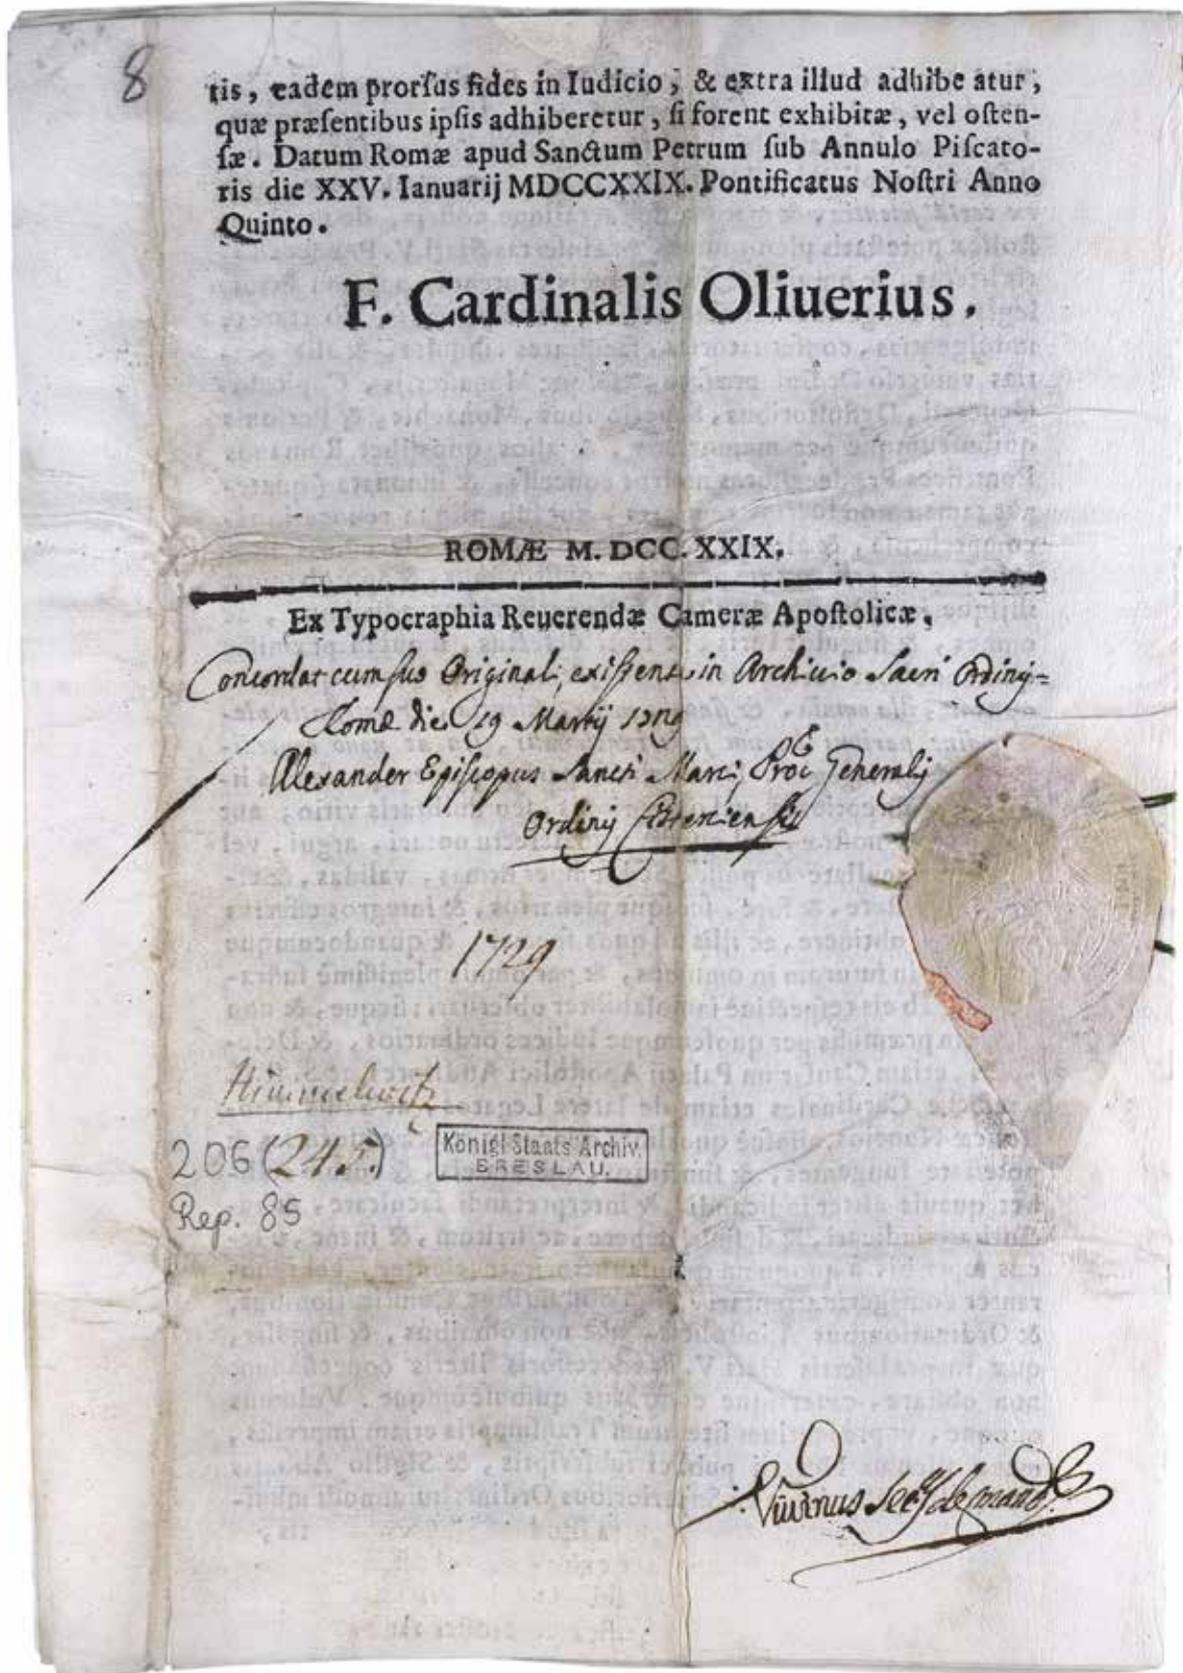 8
tis, eadem prorſus fides in Iudicio, & extra illud adhibe atur,
quæ præſentibus ipſis adhiberetur, ſi forent exhibitæ, vel oſten-
ſæ. Datum Romæ apud Sanctum Petrum ſub Annulo Piſcato-
ris die XXV. Ianuarij MDCCXXIX. Pontificatus Noſtri Anno
Quinto.
F. Cardinalis Oliuerius.
ROMÆ M. DCC. XXIX.
Ex Typocraphia Reuerendæ Cameræ Apoſtolicæ.
Concordat cum ſuo Originali exiſtens in Archiuio Sacri Ordinis
Romæ die 19 Martij 1729
Alexander Epiſcopus Sancti Marci Proc Generalis
Ordinis Ciſterciensis
1729
Himmelwitz
206 (245.)
Königl. Staats Archiv.
BRESLAU.
Rep. 85
Secrs de mandto